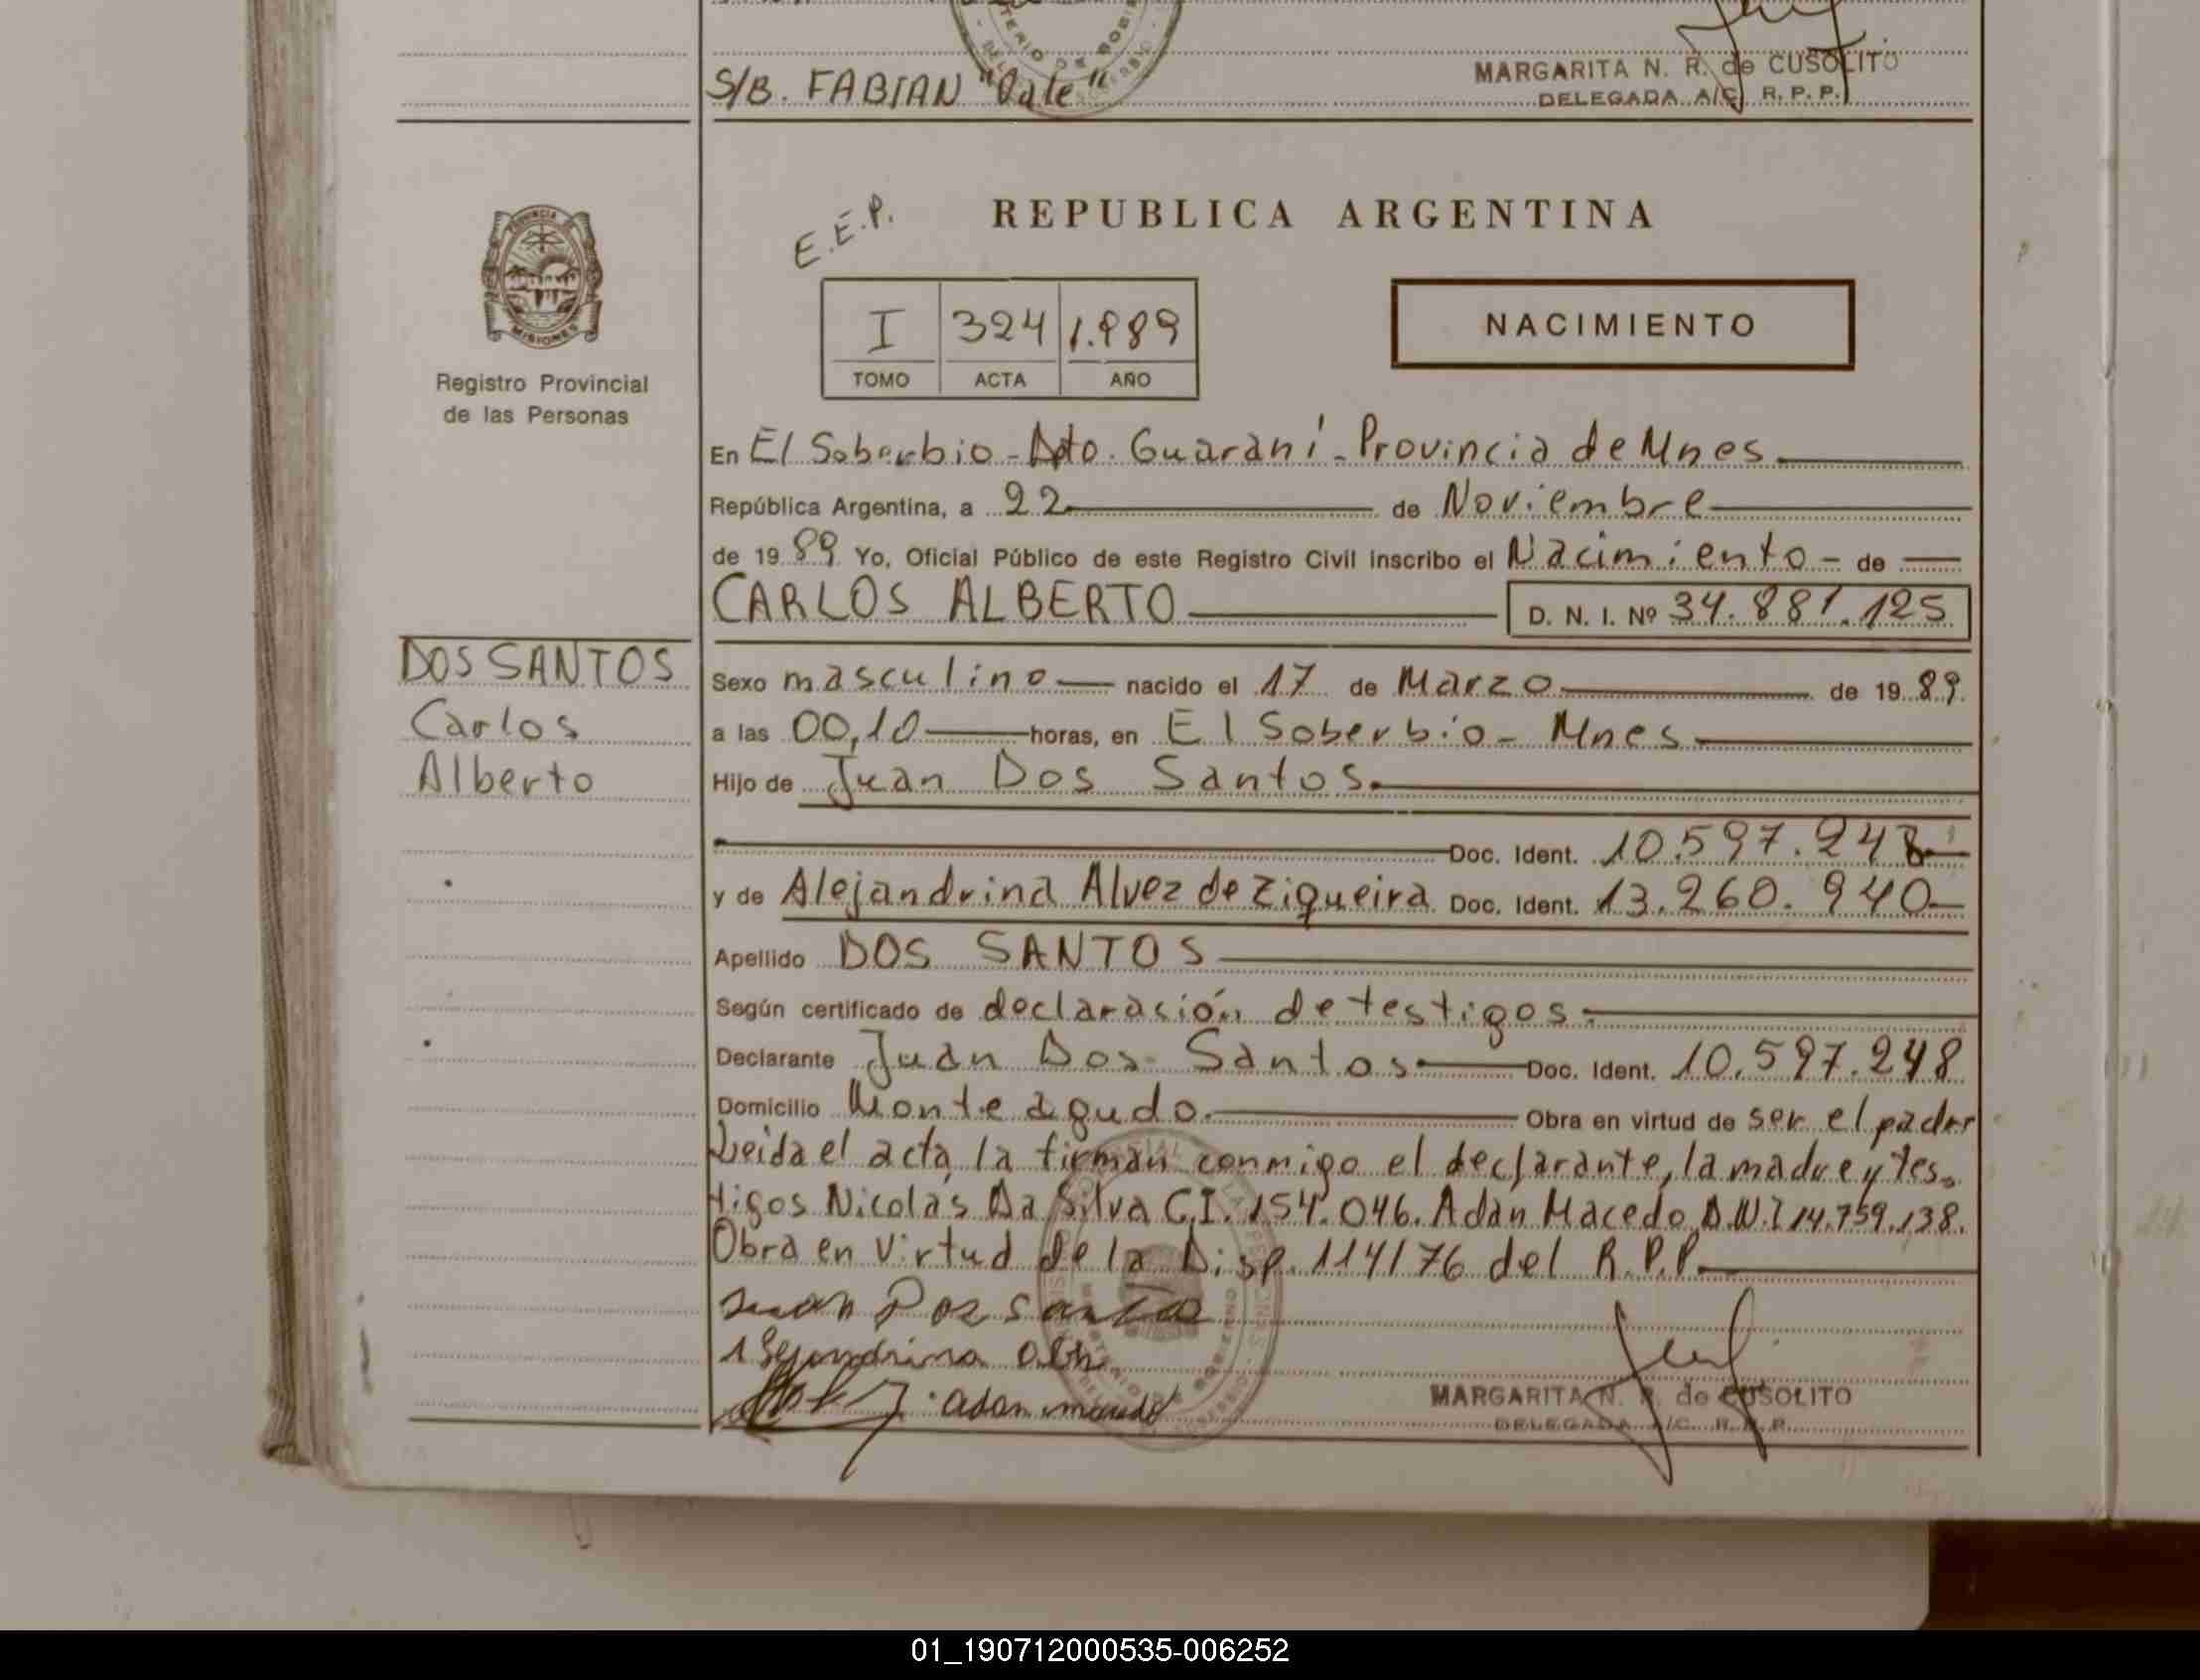 S/B. FABIAN "Vale"
MARGARITA N. R. de CUSOLITO
DELEGADA A/C. R. P. P.
PROVINCIA
MISIONES
Registro Provincial
de las Personas
E.E.P.
REPUBLICA ARGENTINA
I 324 1.989
TOMO ACTA AÑO
NACIMIENTO
En El Soberbio - Dpto. Guaraní - Provincia de Mnes
República Argentina, a 22 de Noviembre
de 19 89 Yo, Oficial Público de este Registro Civil inscribo el Nacimiento - de
CARLOS ALBERTO D. N. I. Nº 34.881.125
DOS SANTOS
Carlos
Alberto
Sexo masculino nacido el 17 de Marzo de 19 89.
a las 00,10 horas, en El Soberbio - Mnes
Hijo de Juan Dos Santos.
Doc. Ident. 10.597.248
y de Alejandrina Alvez de Ziqueira Doc. Ident. 13.260.940
Apellido DOS SANTOS
Según certificado de declaración de testigos.
Declarante Juan Dos Santos Doc. Ident. 10.597.248
Domicilio Monteagudo. Obra en virtud de ser el padre
Leida el acta, la firman conmigo el declarante, la madre y tes-
tigos Nicolás Da Silva C.I. 154.046. Adán Macedo D.N.I 14.759.138.
Obra en Virtud de la Disp. 114/76 del R.P.P.
Juan Dos Santos
MARGARITA N. R. de CUSOLITO
DELEGADA A/C. R. P. P.
01_190712000535-006252